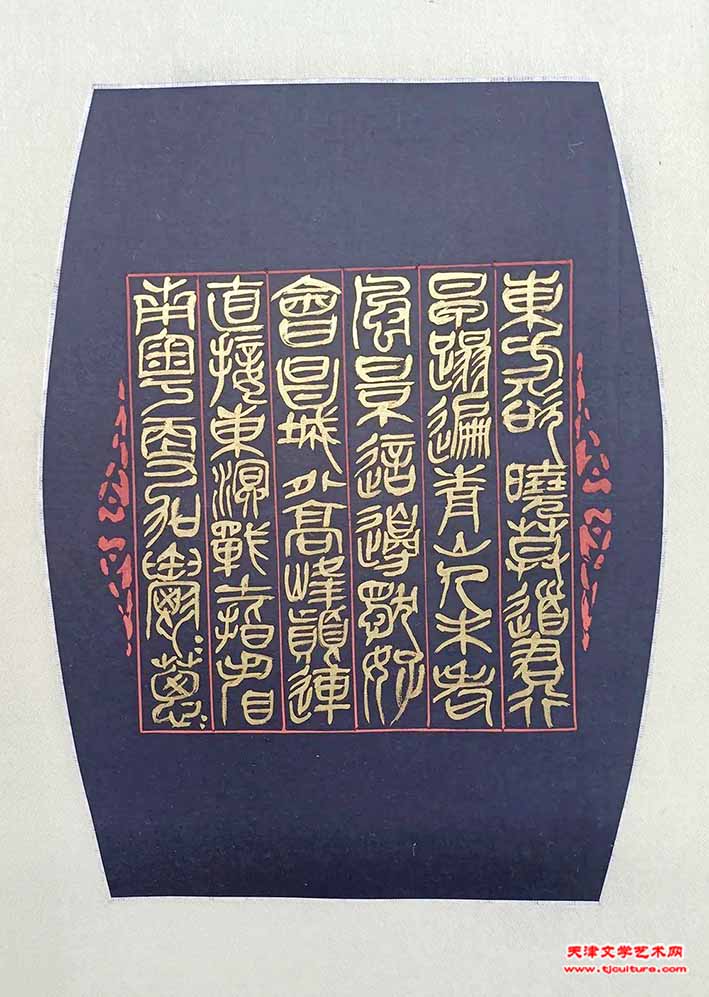 東方欲曉莫道君行
早蹋遍青山人未老
風景這邊獨好
會昌城外高峰顛連
直接東溟戰士指看
南粵更加鬱〻蔥〻
天津文学艺术网
www.tjculture.com